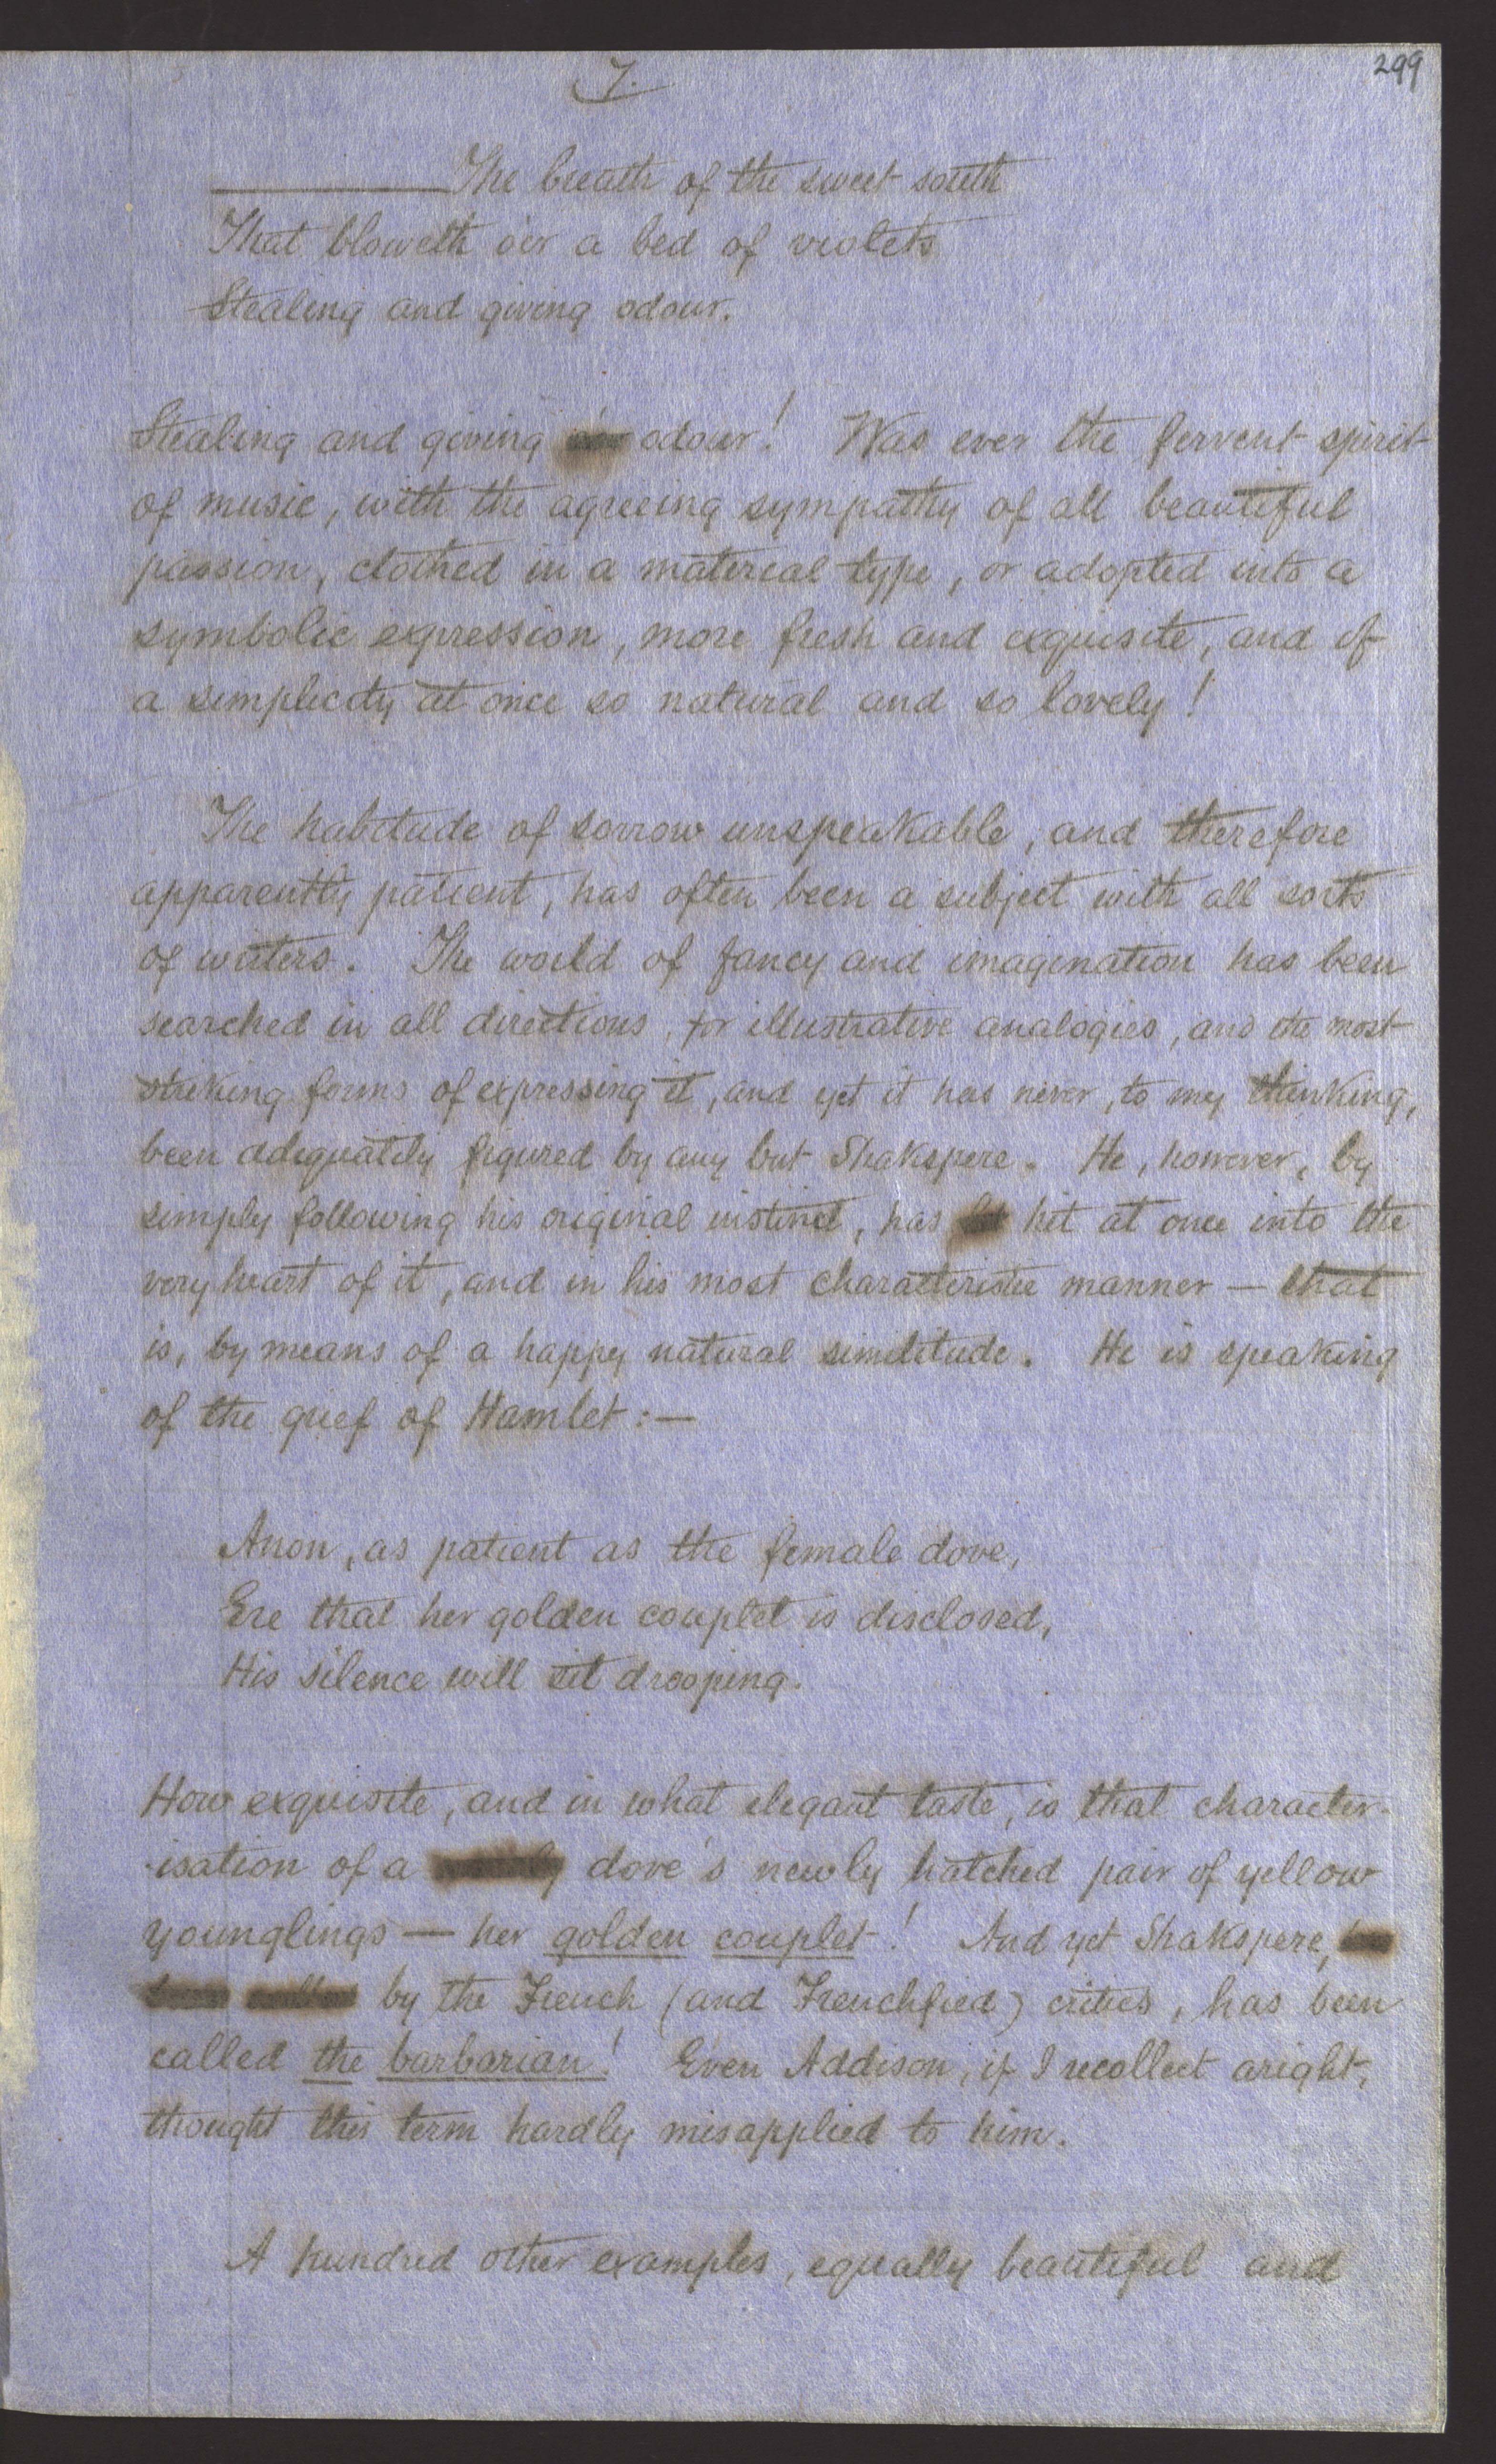 7.
299
The breath of the sweet south
That bloweth o'er a bed of violets
Stealing and giving odour.
Stealing and giving odour! Was ever the fervent spirit
of music, with the agreeing sympathy of all beautiful
passion, clothed in a material type, or adopted into a
symbolic expression, more fresh and exquisite, and of
a simplicity at once so natural and so lovely!
The habitude of sorrow unspeakable, and therefore
apparently patient, has often been a subject with all sorts
of writers. The world of fancy and imagination has been
searched in all directions, for illustrative analogies, and the most
striking forms of expressing it, and yet it has never, to my thinking,
been adequately figured by any but Shakspere. He, however, by
simply following his original instinct, has hit at once into the
very heart of it, and in his most characteristic manner — that
is, by means of a happy natural similitude. He is speaking
of the grief of Hamlet:—
Anon, as patient as the female dove,
Ere that her golden couplet is disclosed,
His silence will sit drooping.
How exquisite, and in what elegant taste, is that character-
isation of a dove's newly hatched pair of yellow
younglings — her golden couplet! And yet Shakspere,
by the French (and Frenchfied) critics, has been
called the barbarian! Even Addison, if I recollect aright,
thought this term hardly misapplied to him.
A hundred other examples, equally beautiful and